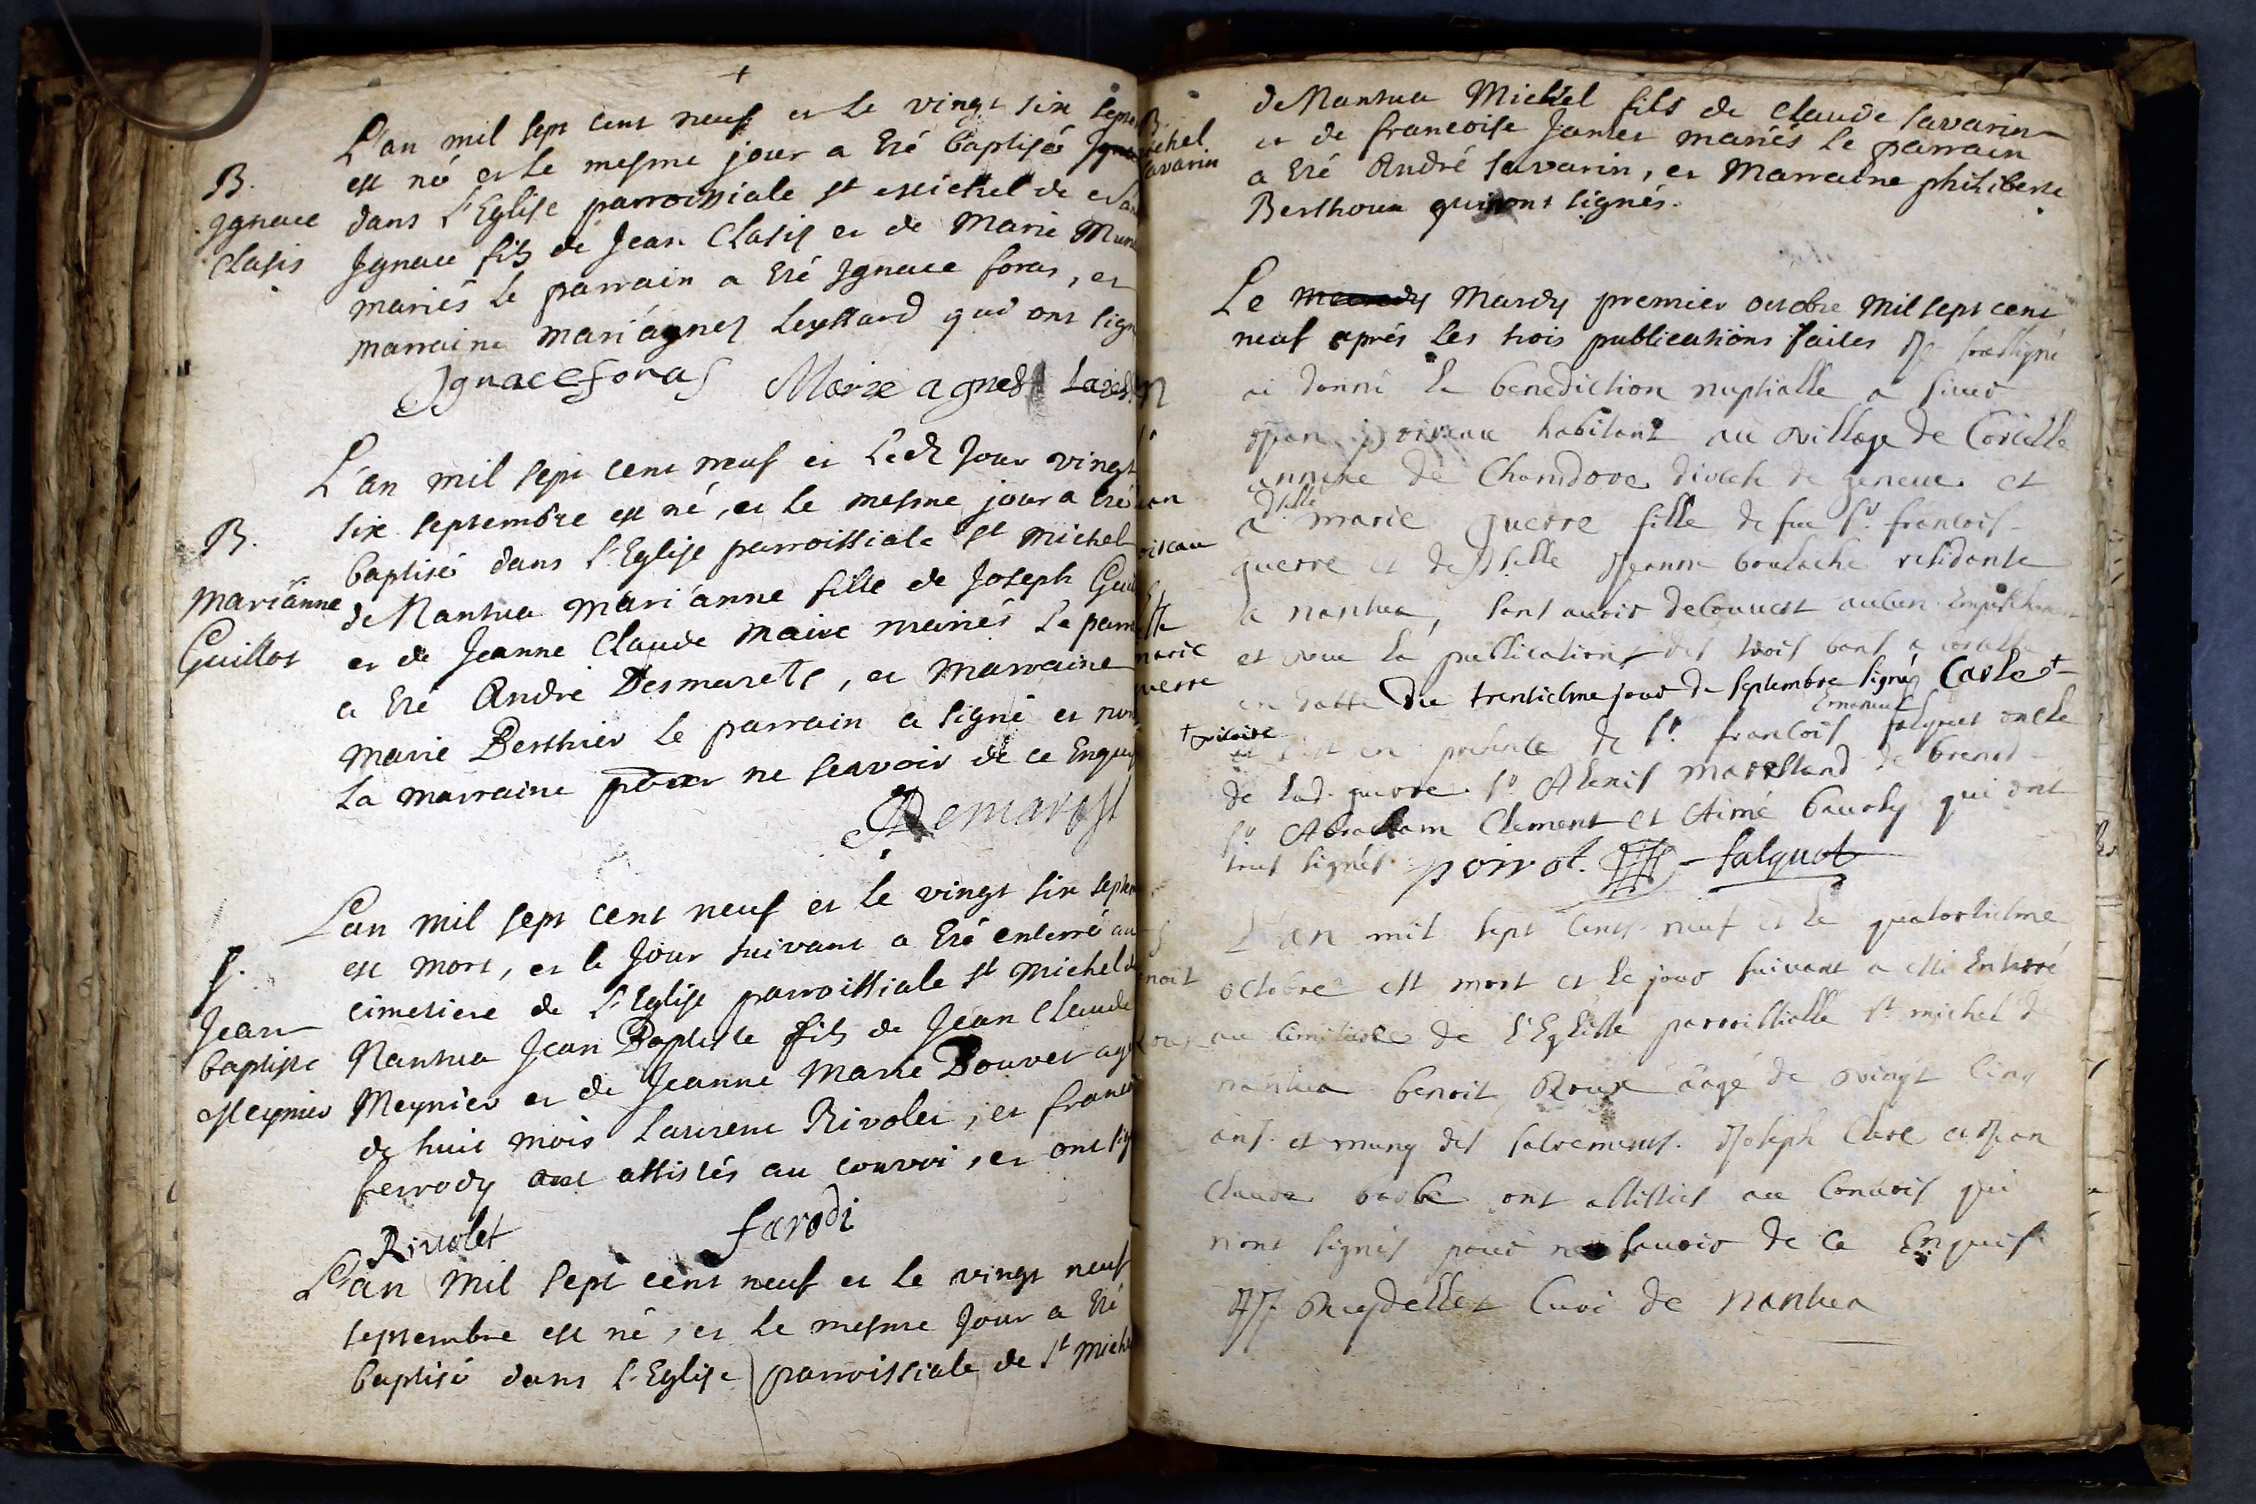 L'an mil sept cent neuf et le vingt six sept
est né et le mesme jour a eté baptisé
B.
Ignace
Clasis
dans l'Eglise parroissiale st Michel de
Ignace fils de Jean Clasis et de Marie
mariés le parrain a eté Ignace foras, et
marraine mari'agnes Leyssard qui ont sign
Ignace foras Marie agnes
L'an mil sept cent neuf et Ledt Jour vingt
six septembre est né, et le mesme jour a eté
B.
Marianne
Guillot
baptisé dans l'Eglise parroissiale st Michel
de Nantua Mari'anne fille de Joseph
et de Jeanne Claude Maire mariés le parra
a eté André Desmarets, et Marraine
Marie Berthier le parrain a signé et non
la marraine pour ne scavoir de ce Enquis
Demarest
L'an mil sept cent neuf et le vingt six septem
est mort, et le Jour suivant a eté enterré au
cimetiere de l'Eglise parroissiale st Michel de
Jean
baptiste
Meynier
Nantua Jean Baptiste fils de Jean Claude
Meynier et de Jeanne Marie Bouvet agé
de huit mois Laurent Rivolet, et franc
ferrody ont assistés au convoi, et ont sig
Rivolet farodi
L'an mil sept cent neuf et le vingt neuf
septembre est né, et le mesme Jour a eté
baptisé dans l'Eglise parroissiale de st Mich
B.
ichel
avarin
de Nantua Michel fils de Claude Savarin
et de francoise Janter mariés le parrain
a eté André Savarin, et Marraine philiberte
Berthoux qui ont signés.
Le Mardy premier octobre mil sept cent
neuf aprés les trois publications faites Je soussigné
ai donné la benediction nuptialle a sieur
Jean habitant au village de Corcelle
annexe de Chamdore diocese de geneve et
a dlle marie guerre fille de feu sr. francois
guerre et de dlle Jeanne residante
a nantua, sans avoir decouvert aucun Empechement
et veue la publication des trois bans a
en datte du trentiesme jour de septembre signé Carle +
+ vicaire
en presence de sr. francois Emanuel falquet oncle
de lad. guerre sr Alexis Marelland de brenod
sr. Abraham Clement et Aimé qui ont
tous signés poirrot. falquet
L'an mil sept cents neuf et le quatorsiesme
octobre est mort et le jour suivant a esté Enterré
au cimitiere de l'Eglisse parroissialle st michel de
nantua benoit Roux aagé de vingt cinq
ans et muny des sacrements. Joseph Clerc et Jean
Claude ont assistés au Convois qui
n'ont signés pour ne scavoir de ce Enquis
Curé de Nantua